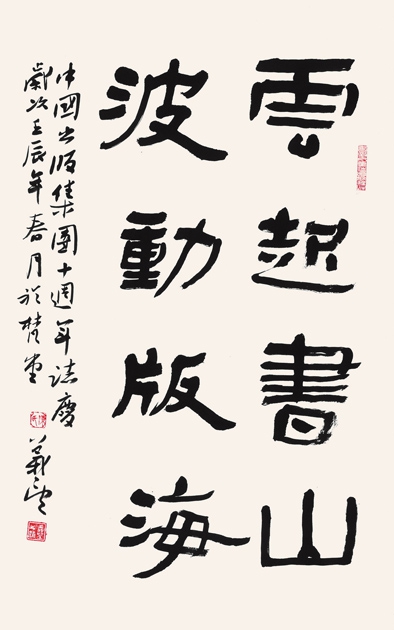 雲起書山
波動版海
中國出版集團十週年誌慶
歲次壬辰年春月於堂